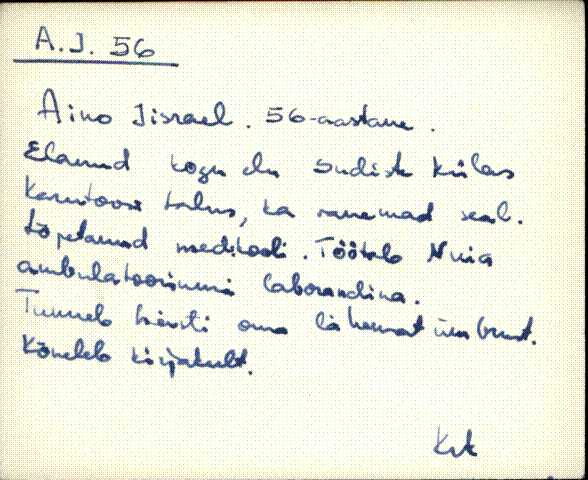 A.J. 56
Aino Iisrael. 56-aastane.
Elanud kogu elu Sudiste külas
Karutoose talus, ka vanemad seal.
Lõpetanud meditkooli. Töötab Nuia
ambulatooriumi laborandina.
Tunneb hästi oma lähemat ümbrust.
Kõneleb kirjakeelt.